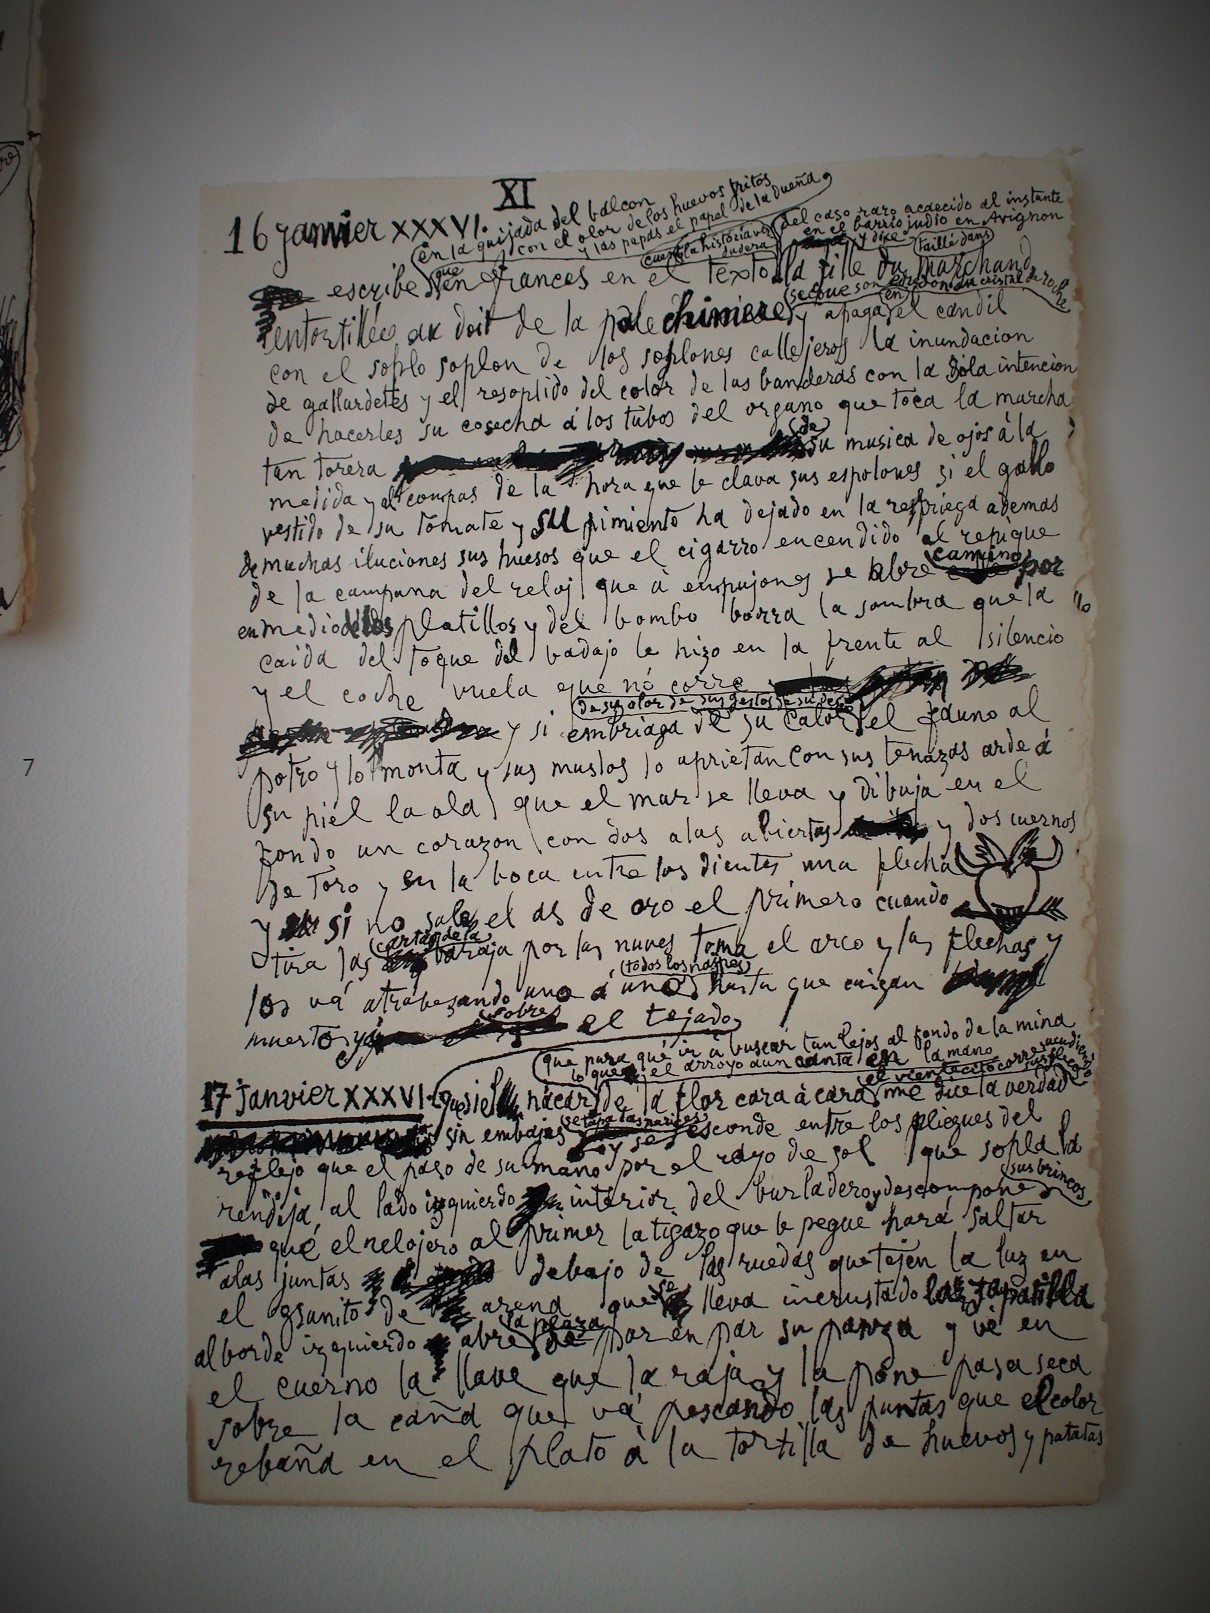 XI
16 janvier XXXVI.
en la quijada del balcon
con el olor de los huevos fritos
y las papas el papel de la dueña
del caso raro acaecido al instante
en el barrio judio en Avignon
y dixe taillé dans
escribe que en frances en el texto la fille du marchand
entortillée au doit de la pale chimiere y apaga el candil
con el soplo soplon de los soplones callejeros la inundacion
de gallardetes y el resoplido del color de las banderas con la sola intencion
de hacerles su cosecha á los tubos del organo que toca la marcha
tan torera de su musica de ojos á la
medida y al compas de la hora que le clava sus espolones si el gallo
vestido de su tomate y su pimiento ha dejado en la refriega ademas
de muchas iluciones sus huesos que el cigarro encendido al repique
de la campana del reloj que à empujones se abre camino por
en medio de los platillos y del bombo borra la sombra que la
caida del toque del badajo le hizo en la frente al silencio
y el coche vuela que no corre
de su olor de sus gestos de su
y si embriaga de su calor el fauno al
potro y lo monta y sus muslos lo aprietan con sus tenazas arde á
su piel la ola que el mar se lleva y dibuja en el
fondo un corazon con dos alas abiertas y dos cuernos
de toro y en la boca entre los dientes una flecha
y si no sale el as de oro el primero cuando
tira las cartas de la baraja por las nuves toma el arco y las flechas y
los vá atrabesando uno á uno todos los naipes hasta que caigan
muertos ya sobre el tejado
que para qué ir á buscar tan lejos al fondo de la mina
lo que el arroyo aun canta en la mano
el vientecito corre
17 janvier XXXVI que si el nacar de la flor cara á cara me dice la verdad
sin embajes se tapa las narices y se esconde entre los pliegues del
reflejo que el paso de su mano por el rayo de sol que sopla la
rendija al lado izquierdo interior del burladero y descompone sus brincos
qué el relojero al primer latigazo que le pegue hará saltar
a las juntas debajo de las ruedas que tejen la luz en
el granito de arena que se lleva incrustado la zapatilla
al borde izquierdo abre la plaza de par en par su panza y vé en
el cuerno la llave que la raja y la pone pasa seca
sobre la caña que vá pescando las puntas que el color
rebaña en el plato à la tortilla de huevos y patatas
7